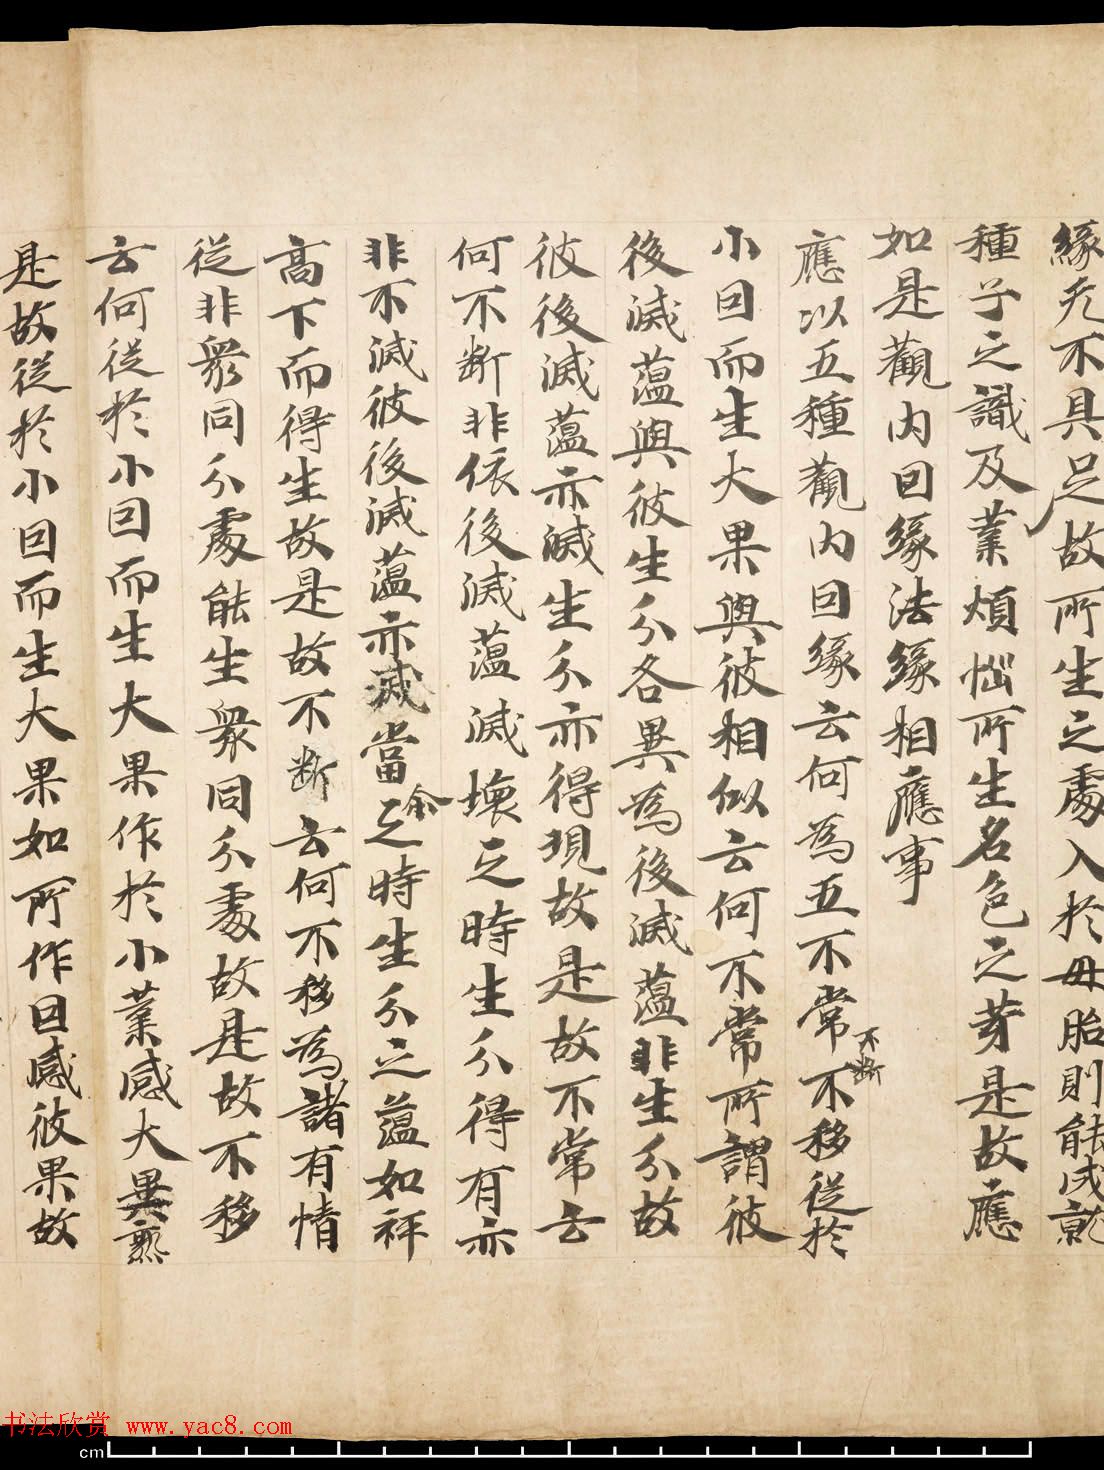 緣无不具足故所生之處入於母胎則能成就
種子之識及業煩惱所生名色之芽是故應
如是觀內因緣法緣相應事
應以五種觀內因緣云何為五不常不斷不移從於
小因而生大果與彼相似云何不常所謂彼
後滅蘊與彼生分各異為後滅蘊非生分故
彼後滅蘊亦滅生分亦得現故是故不常云
何不斷非依後滅蘊滅壞之時生分得有亦
非不滅彼後滅蘊亦滅當尒之時生分之蘊如秤
高下而得生故是故不斷云何不移為諸有情
從非眾同分處能生眾同分處故是故不移
云何從於小因而生大果作於小業感大異熟
是故從於小因而生大果如所作因感彼果故
书法欣赏 www.yac8.com
cm